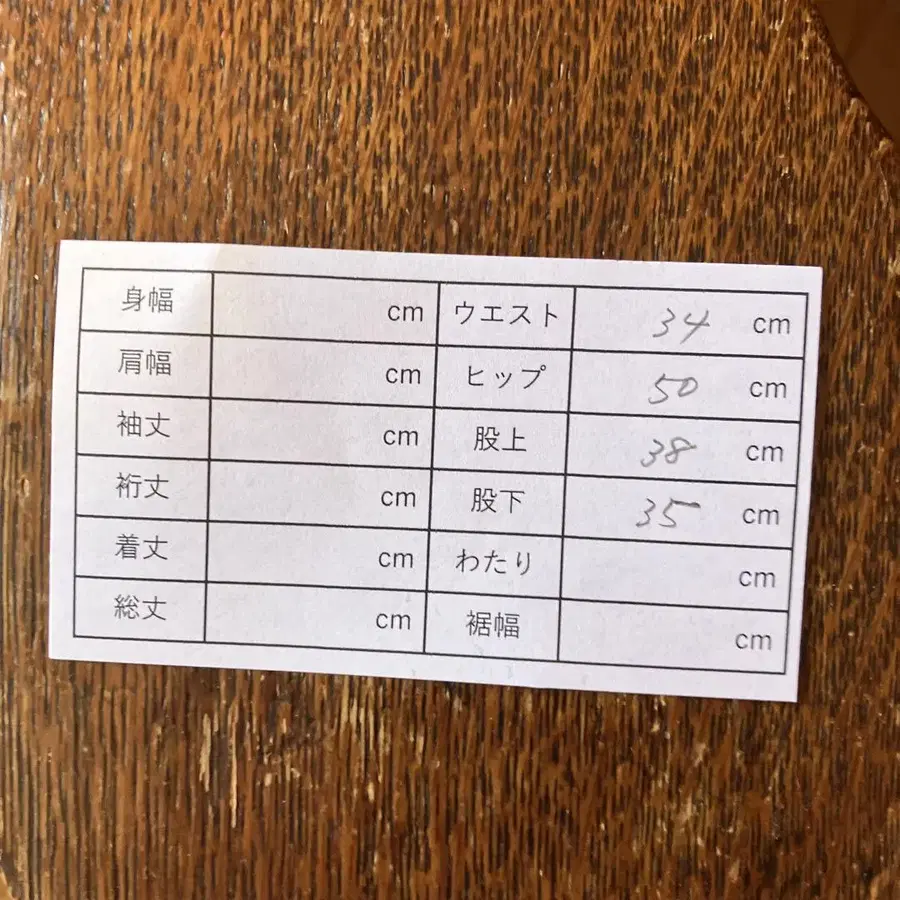 身幅 cm ウエスト 34 cm
肩幅 cm ヒップ 50 cm
袖丈 cm 股上 38 cm
裄丈 cm 股下 35 cm
着丈 cm わたり cm
総丈 cm 裾幅 cm